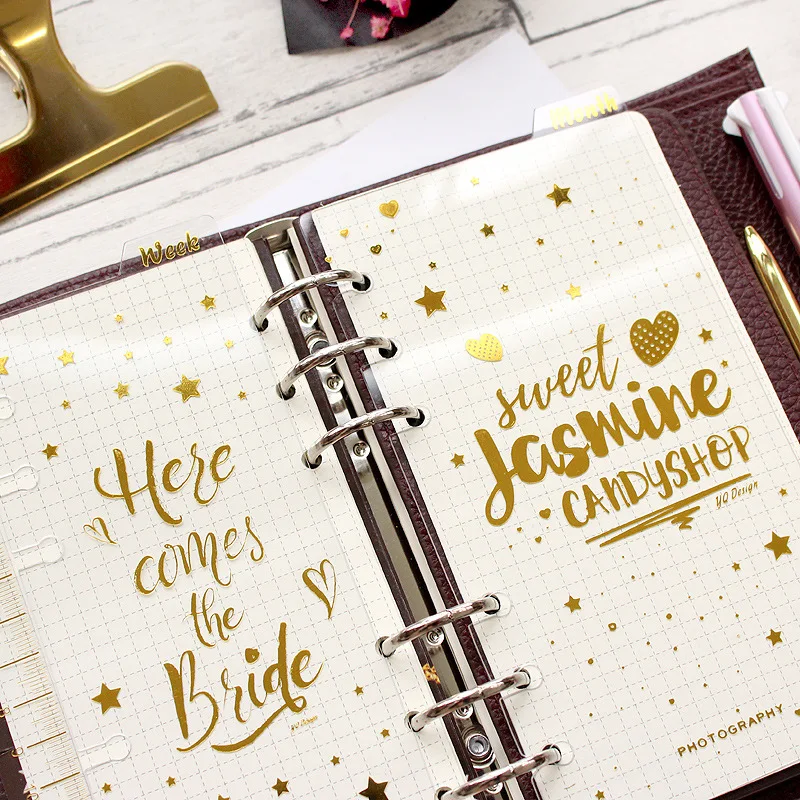 Week
Here
comes
the
Bride
YQ Design
Month
sweet
Jasmine
CANDYSHOP
YQ Design
PHOTOGRAPHY